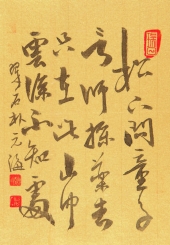 松下問童子
言師採藥去
只在此山中
雲深不知處
石朴元